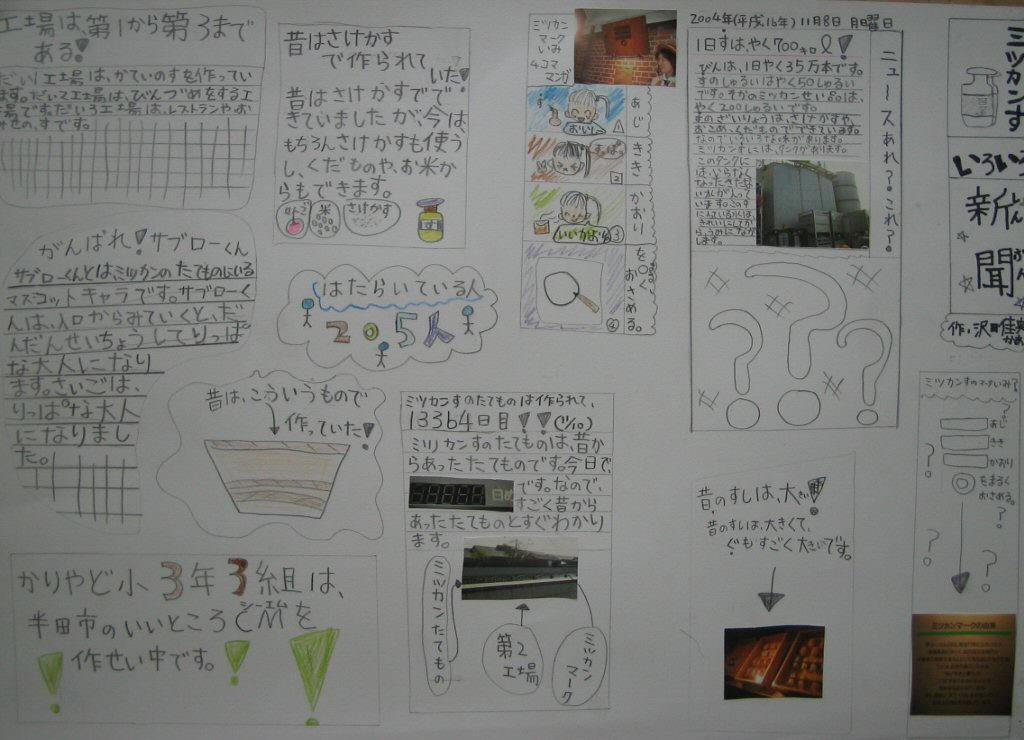 ミツカンす
いろいろ
新聞
2004年(平成16年)11月8日 月曜日
ニュースあれ?これ?
1日すは、やく700キロℓ!
びんは、1日やく35万本です。
すのしゅるいはやく50しゅるい
です。そのミツカンせい品は、
やく200しゅるいです。
すのざいりょうは、さけかすや、
おこめ、くだものでできています。
なのでいろいろな味があります。
ミツカンすには、タンクがあります。
このタンクに
ミツカン
マーク
いみ
4コマ
マンガ
あじ
1
きき
2
かおり
いいかおり
3
を○く
おさめる。
4
昔はさけかす
で作られて
いた!
昔はさけかすでで
きていましたが、今は、
もちろんさけかすも使う
し、くだものや、お米か
らもできます。
りんご
米
さけかす
す
工場は、第1から第3まで
ある!
だい1工場は、かていのすを作ってい
ます。だい2工場は、びんづめをする工
場です。だい3工場は、レストランやお
みせの、すです。
がんばれ!サブローくん
サブローくんとはミツカンのたてものにいる
マスコットキャラです。サブローく
んは、入口からみていくと、だ
んだんせいちょうしてりっぱ
な大人になり
ます。さいごは、
りっぱな大人
になりまし
た。
はたらいている人
205人
昔は、こういうもので
作っていた!
ミツカンすのたてものは作られて、
13364日目!!(11/10)
ミツカンすのたてものは、昔か
らあったたてものです。今日で、
日め
です。なので、
すごく昔から
あったたてものとすぐわかり
ます。
ミツカンたてもの
第2
工場
ミツカン
マーク
昔のすしは、大きい!
昔のすしは、大きくて、
ぐもすごく大きいです。
ミツカンすのマークいみ?
あじ
きき
かおり
をまるく
おさめる。
ミツカンマークの由来
かりやど小3年3組は、
半田市のいいところCMを
作せい中です。